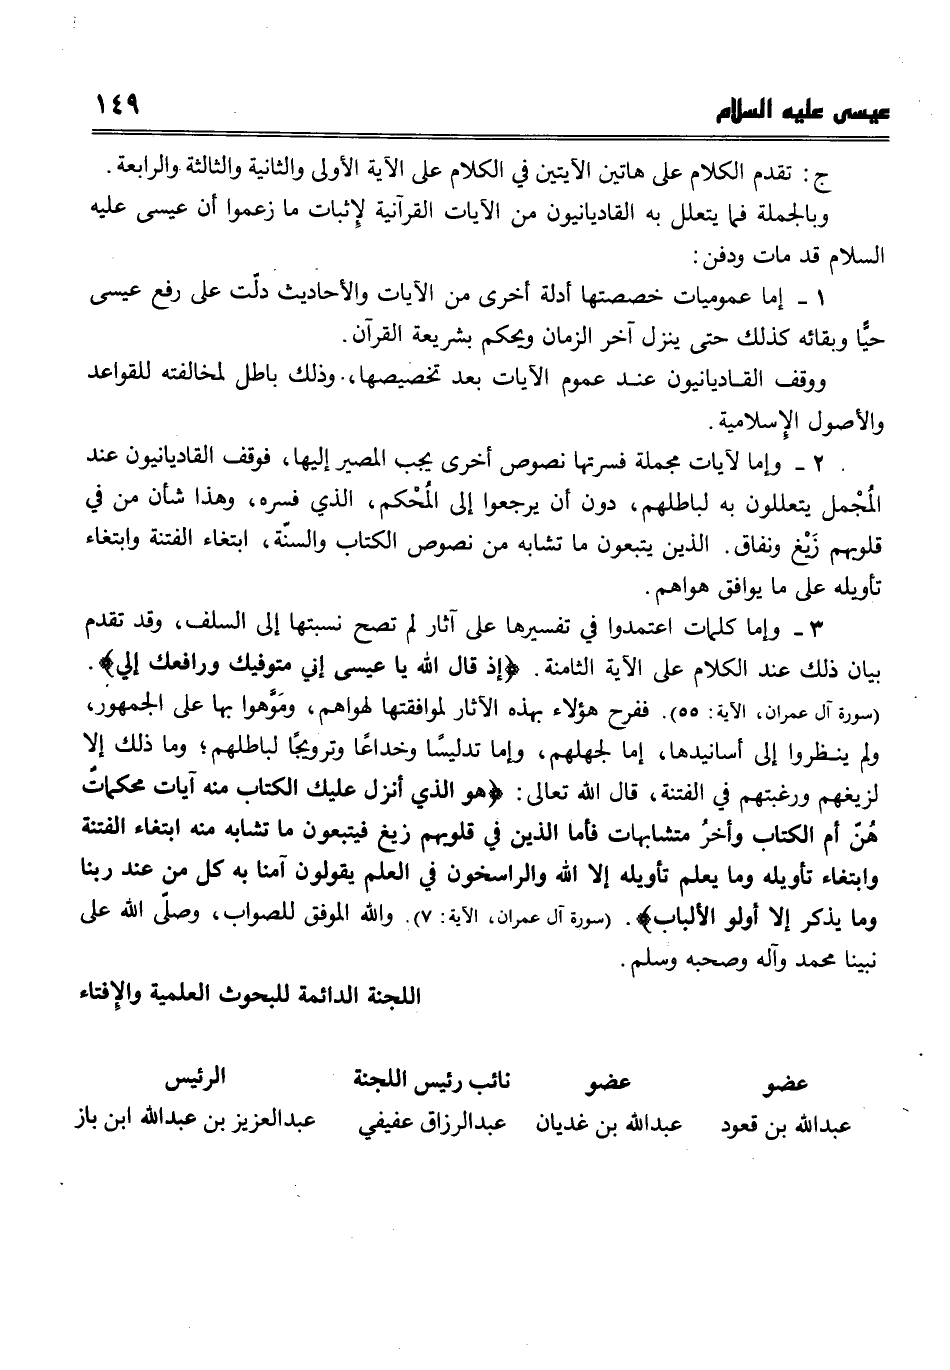 عيسى عليه السلام
١٤٩
ج: تقدم الكلام على هاتين الآيتين في الكلام على الآية الأولى والثانية والثالثة والرابعة.
وبالجملة فما يتعلل به القاديانيون من الآيات القرآنية لإثبات ما زعموا أن عيسى عليه
السلام قد مات ودفن:
١ - إما عموميات خصصتها أدلة أخرى من الآيات والأحاديث دلّت على رفع عيسى
حيًّا وبقائه كذلك حتى ينزل آخر الزمان ويحكم بشريعة القرآن.
ووقف القاديانيون عند عموم الآيات بعد تخصيصها، وذلك باطل لمخالفته للقواعد
والأصول الإسلامية.
٢ - وإما لآيات مجملة فسرتها نصوص أخرى يجب المصير إليها، فوقف القاديانيون عند
المُجْمل يتعللون به لباطلهم، دون أن يرجعوا إلى المُحْكم، الذي فسره، وهذا شأن من في
قلوبهم زَيْغ ونفاق. الذين يتبعون ما تشابه من نصوص الكتاب والسنّة، ابتغاء الفتنة وابتغاء
تأويله على ما يوافق هواهم.
٣ - وإما كلمات اعتمدوا في تفسيرها على آثار لم تصح نسبتها إلى السلف، وقد تقدم
بيان ذلك عند الكلام على الآية الثامنة. ﴿إذ قال الله يا عيسى إني متوفيك ورافعك إلي﴾.
(سورة آل عمران، الآية: ٥٥). ففرح هؤلاء بهذه الآثار لموافقتها لهواهم، ومَوَّهوا بها على الجمهور،
ولم ينظروا إلى أسانيدها، إما لجهلهم، وإما تدليسًا وخداعًا وترويجًا لباطلهم؛ وما ذلك إلا
لزيغهم ورغبتهم في الفتنة، قال الله تعالى: ﴿هو الذي أنزل عليك الكتاب منه آيات محكماتٌ
هُنّ أم الكتاب وأخرُ متشابهات فأما الذين في قلوبهم زيغ فيتبعون ما تشابه منه ابتغاء الفتنة
وابتغاء تأويله وما يعلم تأويله إلا الله والراسخون في العلم يقولون آمنا به كل من عند ربنا
وما يذكر إلا أولو الألباب﴾. (سورة آل عمران، الآية: ٧). والله الموفق للصواب، وصلّى الله على
نبينا محمد وآله وصحبه وسلم.
اللجنة الدائمة للبحوث العلمية والإفتاء
عضو عضو نائب رئيس اللجنة الرئيس
عبدالله بن قعود عبدالله بن غديان عبدالرزاق عفيفي عبدالعزيز بن عبدالله ابن باز